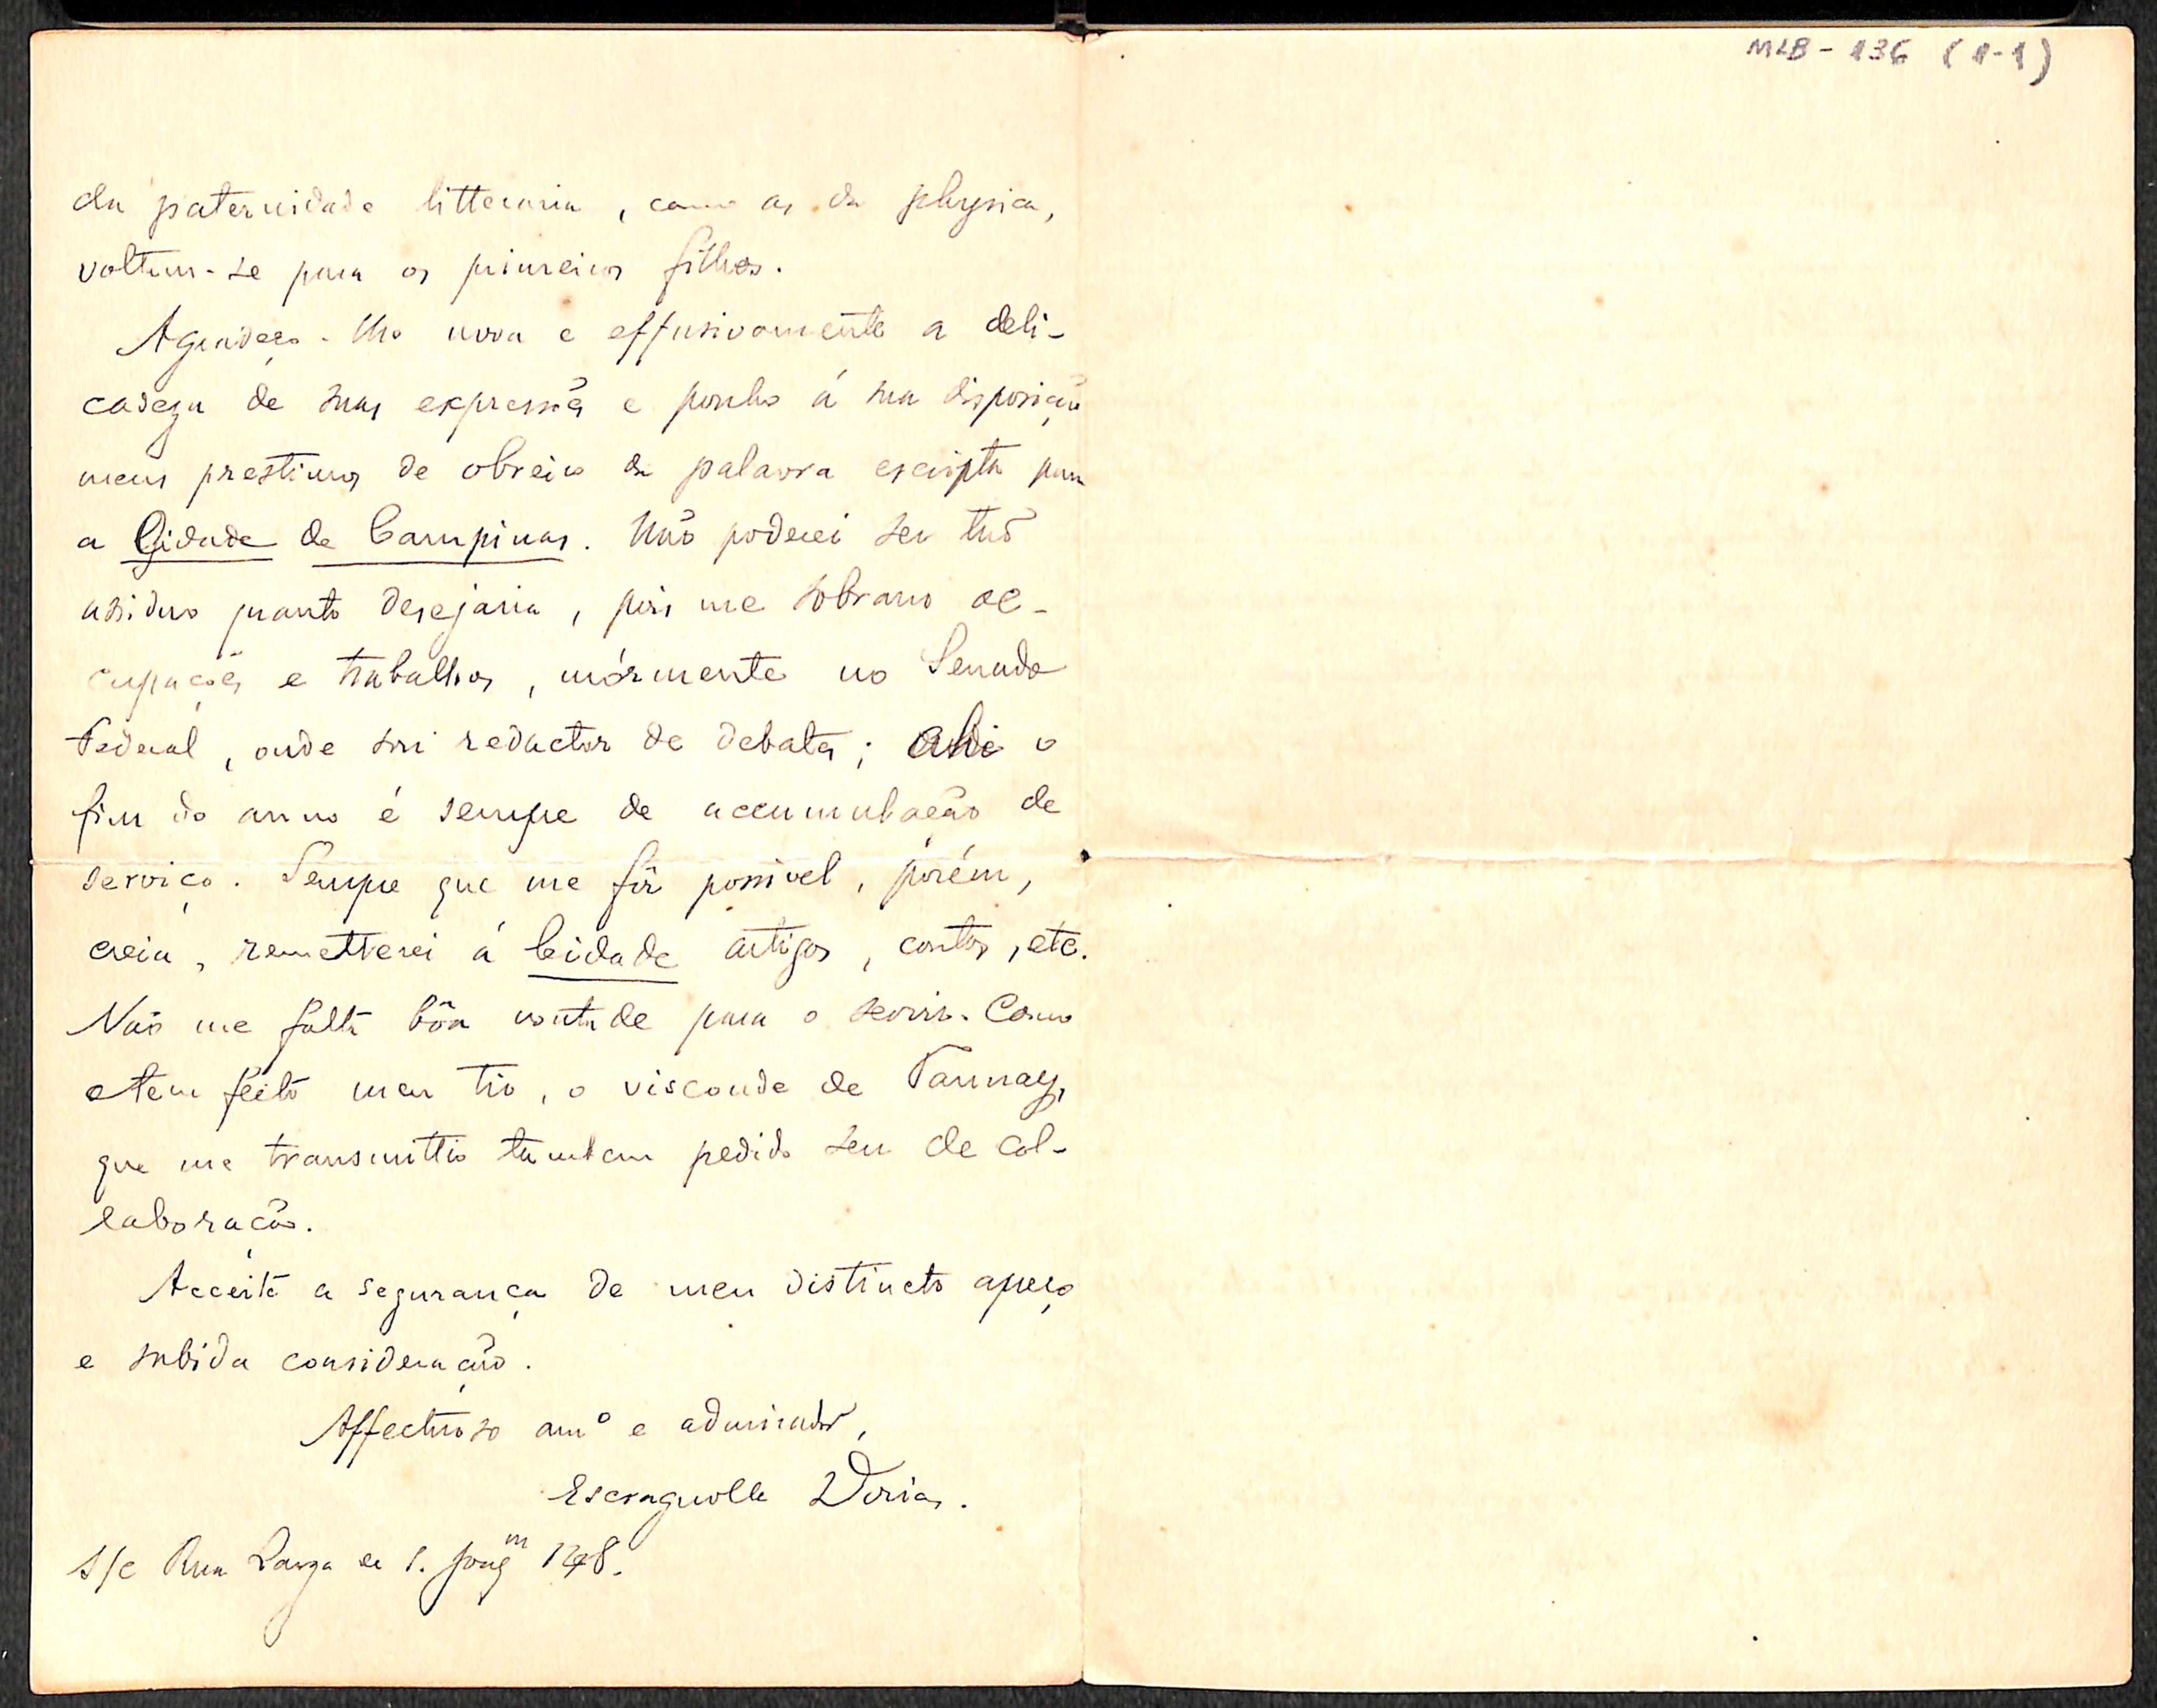 MLB - 136 (1-1)
da paternidade litteraria, como as da physica,
voltam-se para os primeiros filhos.
Agradeço-lhe nova e effusivamente a deli-
cadeza de suas expressões e ponho á sua disposição
meus prestimos de obreiro da palavra escripta para
a Cidade de Campinas. Não poderei ser tão
assiduo quanto desejaria, pois me sobram oc-
cupações e trabalhos, mórmente no Senado
Federal, onde sou redactor de debates; ahi o
fim do anno é sempre de accumulação de
serviço. Sempre que me fôr possivel, porém,
creia, remetterei á Cidade artigos, contos, etc.
Não me falta bôa vontade para o servir. Como
o tem feito meu tio, o visconde de Taunay,
que me transmittio tambem pedido seu de col-
laboração.
Acceite a segurança de meu distincto apreço
e subida consideração.
Affectuoso amº e admirador,
Escragnolle Doria.
S/C Rua Larga de S. Joaqᵐ 148.